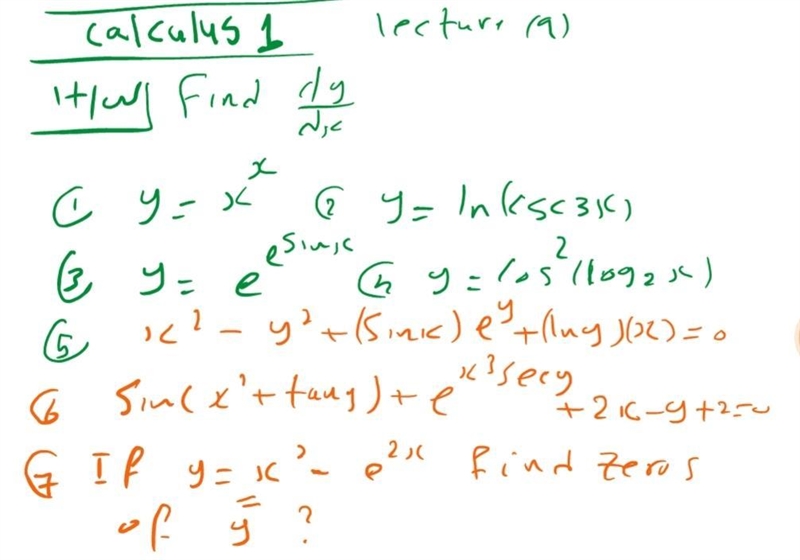 Calculus 1 lecture (9)
H/W Find dy/dx
① y = x^x ② y = ln(csc 3x)
③ y = e^e^sinx ④ y = cos²(log₂ x)
⑤ x² - y² + (sinx) e^y + (lny)(x) = 0
⑥ sin(x² + tany) + e^x³secy + 2x - y + 2 = 0
⑦ If y = x² - e^2x find zeros
of y̿ ?